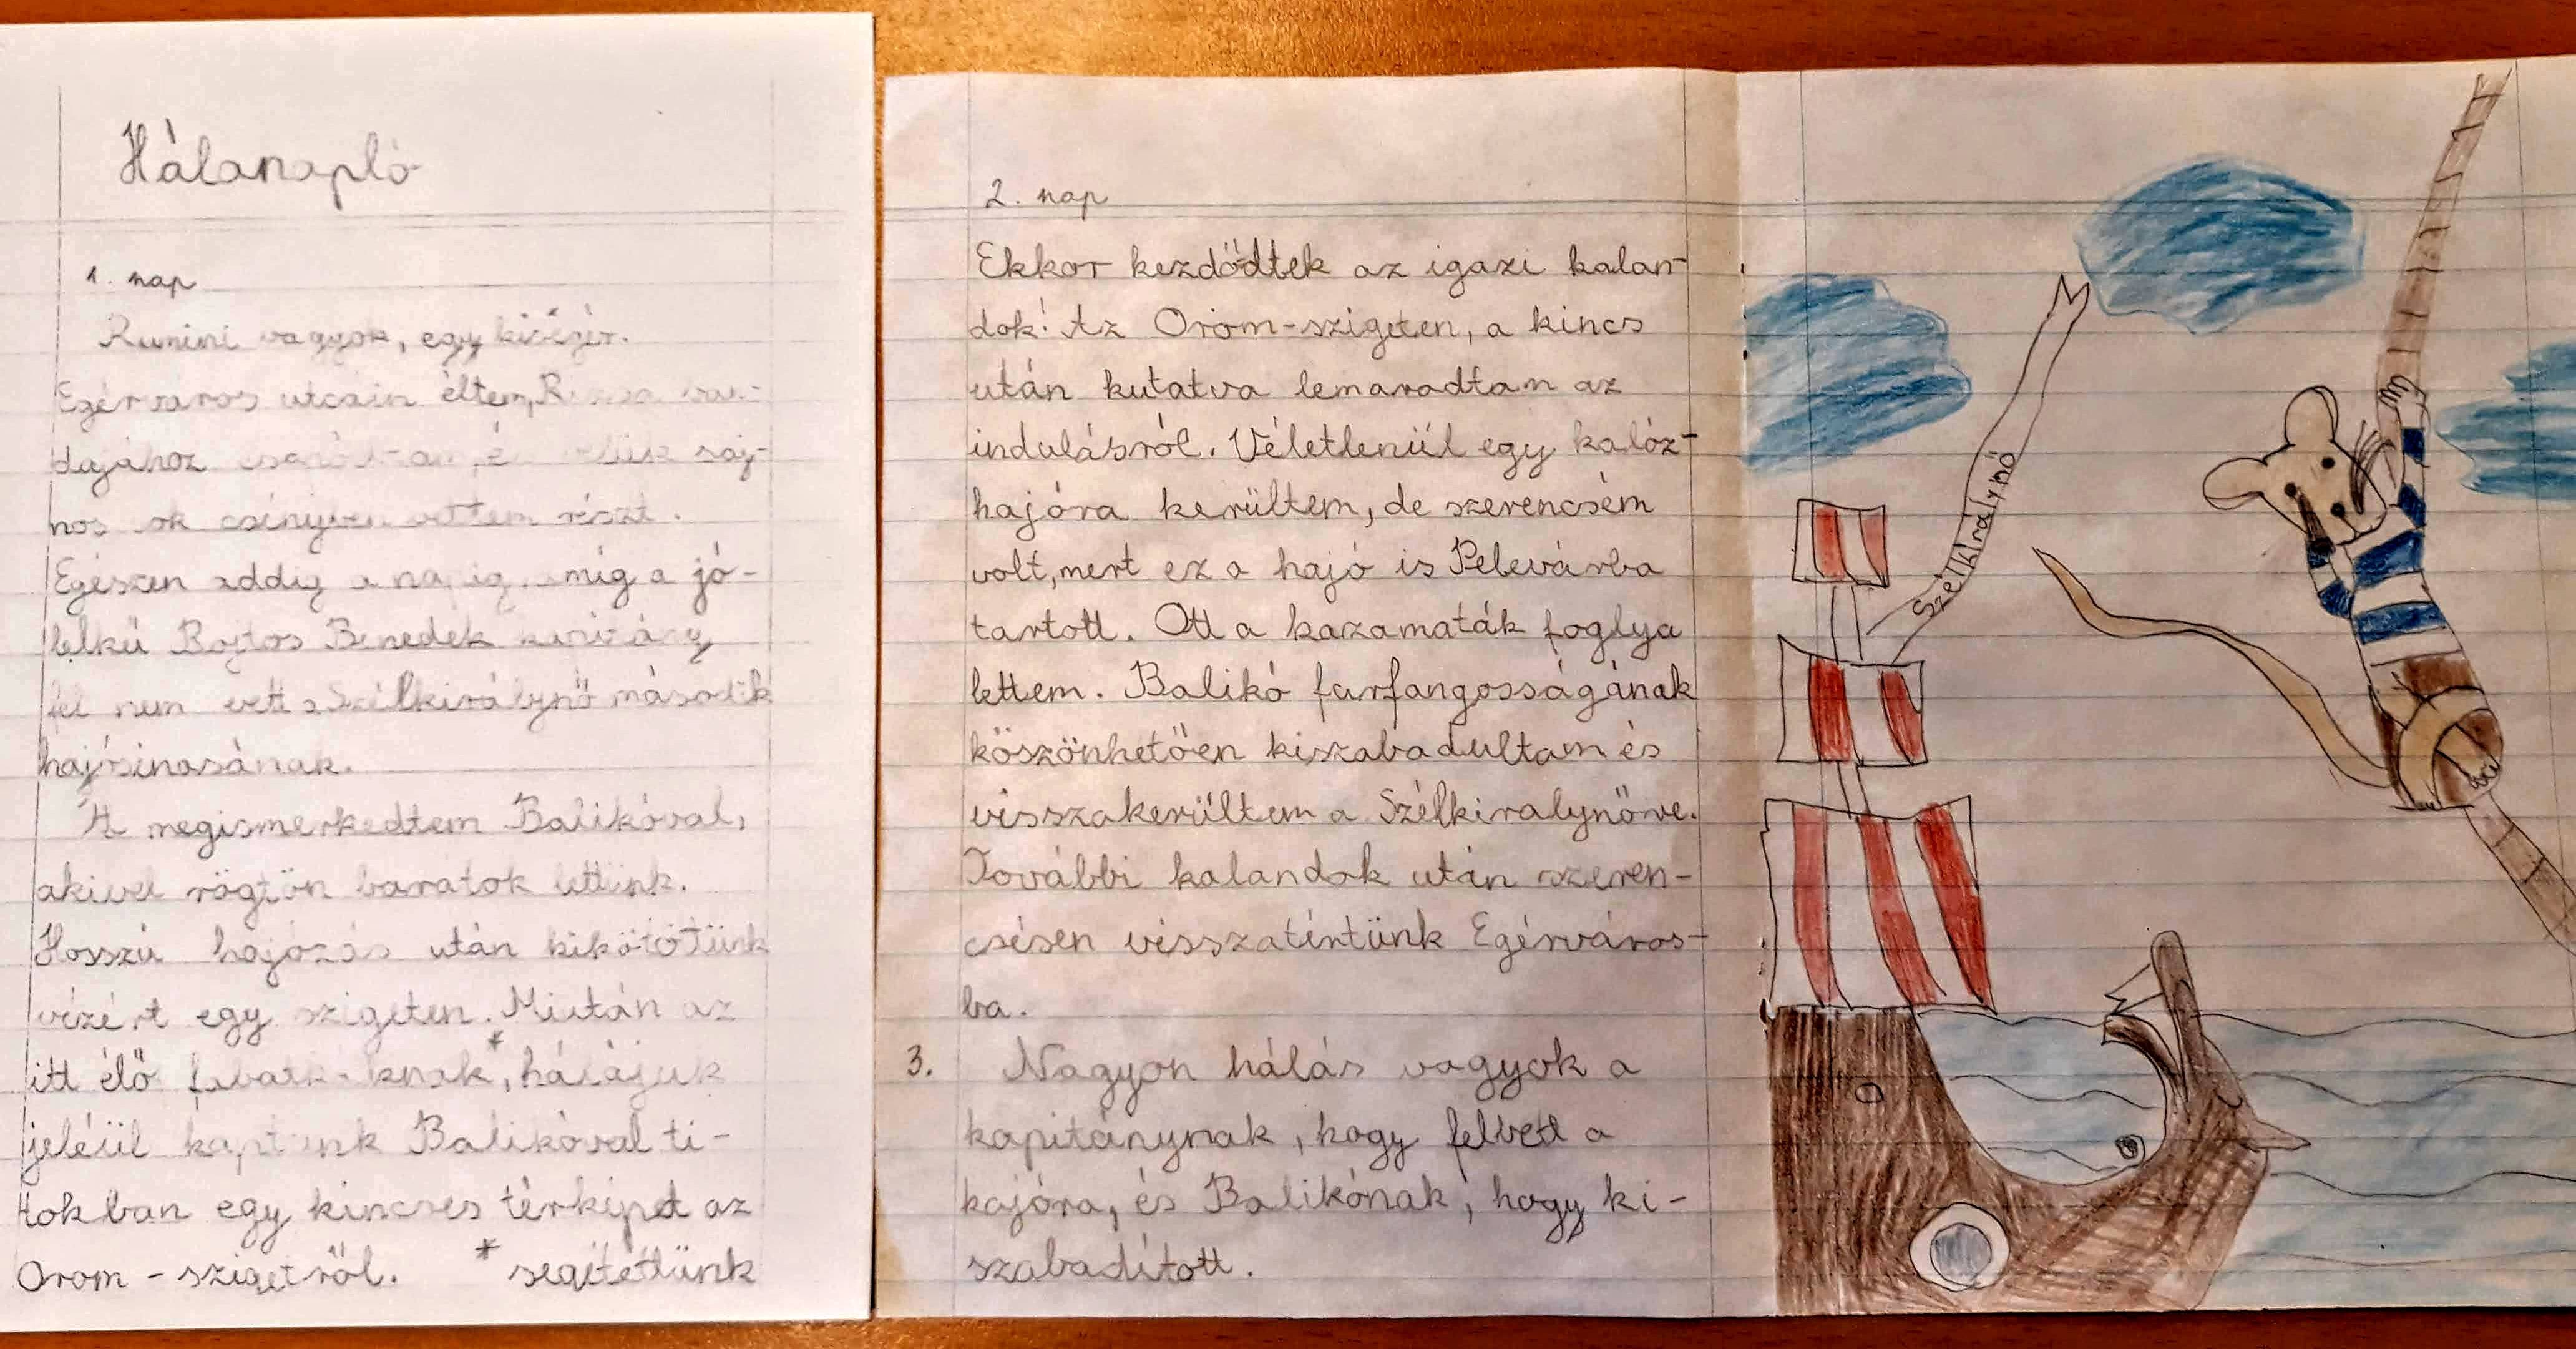 Hálanapló
1. nap
Rumini vagyok, egy kisegér.
Egérváros utcáin éltem,
dajához saj-
nos sok csínyben vettem részt.
Egészen addig a napig, amíg a jó-
lelkű Bojtos Benedek kapitány
fel nem vett a Szélkirálynő második
hajósinasának.
Itt megismerkedtem Balikóval,
akivel rögtön barátok lettünk.
Hosszú hajózás után kikötöttünk
vízért egy szigeten. Miután az
itt élő *, hálájuk
jeléül kaptunk Balikóval ti-
tokban egy kincses térképet az
Orom-szigetről. * segítettünk
2. nap
Ekkor kezdődtek az igazi kalan-
dok! Az Orom-szigeten, a kincs
után kutatva lemaradtam az
indulásról. Véletlenül egy kalóz-
hajóra kerültem, de szerencsém
volt, mert ez a hajó is Pelevárba
tartott. Ott a kazamaták foglya
lettem. Balikó furfangosságának
köszönhetően kiszabadultam és
visszakerültem a Szélkiralynőve.
További kalandok után szeren-
csésen visszatértünk Egérváros-
ba.
3. Nagyon hálás vagyok a
kapitánynak, hogy felvett a
hajóra, és Balikónak, hogy ki-
szabadított.
Szélkirálynő